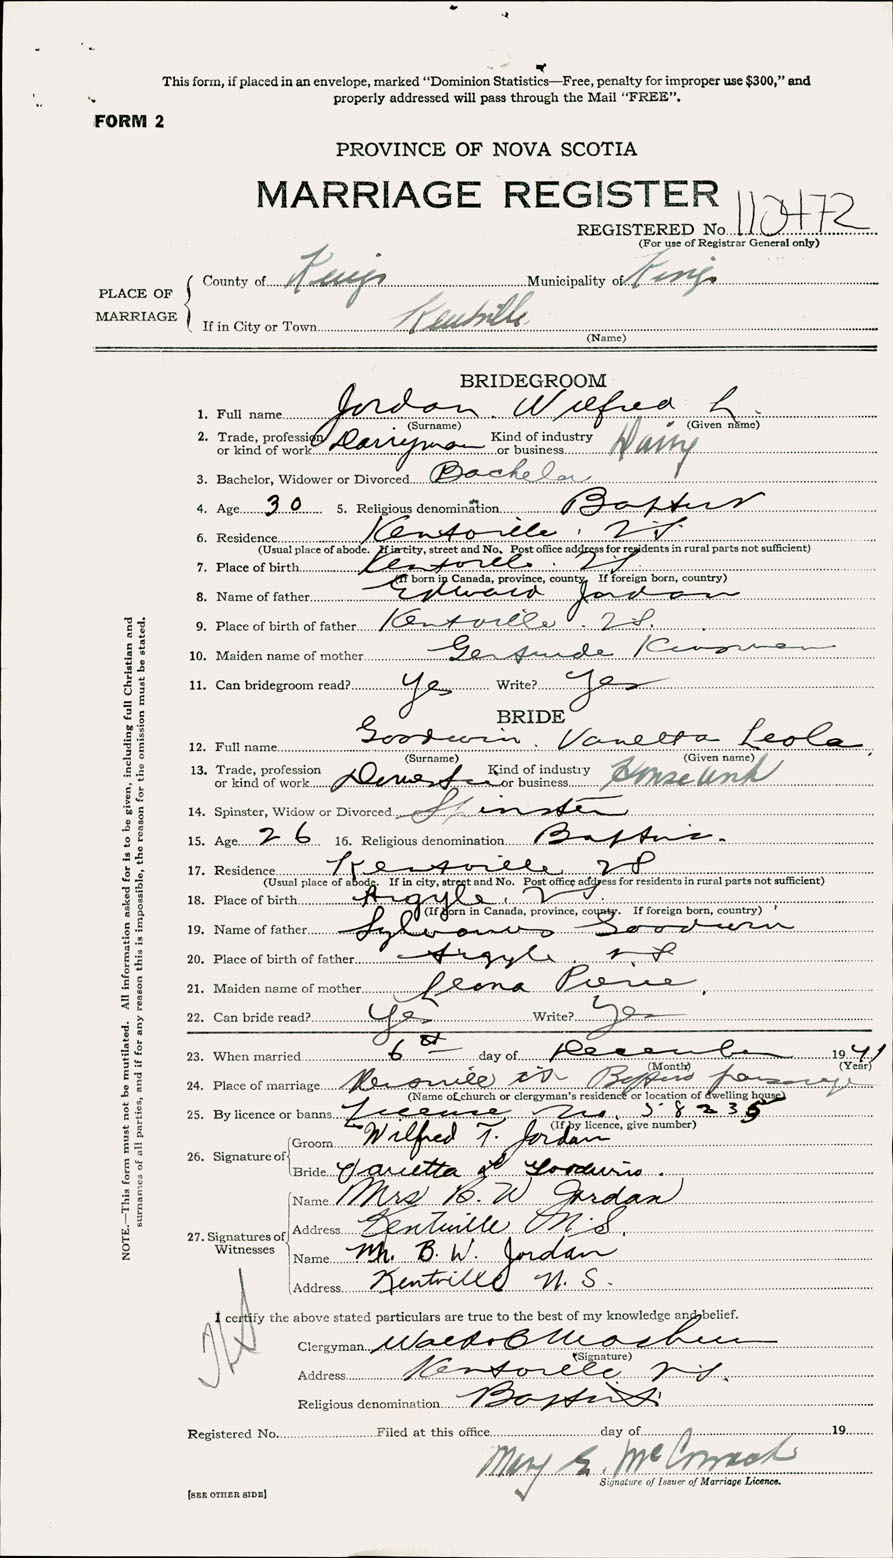 This form, if placed in an envelope, marked “Dominion Statistics—Free, penalty for improper use $300,” and
properly addressed will pass through the Mail “FREE”.
FORM 2
PROVINCE OF NOVA SCOTIA
MARRIAGE REGISTER
REGISTERED No. 110472
(For use of Registrar General only)
PLACE OF MARRIAGE
County of Kings Municipality of Kings
If in City or Town Kentville
(Name)
BRIDEGROOM
1. Full name Jordan. Wilfred
(Surname) (Given name)
2. Trade, profession or kind of work Dairyman Kind of industry or business Dairy
3. Bachelor, Widower or Divorced Bachelor
4. Age 30 5. Religious denomination Baptist
6. Residence Kentville. N S
(Usual place of abode. If in city, street and No. Post office address for residents in rural parts not sufficient)
7. Place of birth Kentville. N S
(If born in Canada, province, county. If foreign born, country)
8. Name of father Edward Jordan
9. Place of birth of father Kentville. N S.
10. Maiden name of mother Gertrude Kinsman
11. Can bridegroom read? Yes Write? Yes
BRIDE
12. Full name Goodwin. Vanetta Leola
(Surname) (Given name)
13. Trade, profession or kind of work Domestic Kind of industry or business Housework
14. Spinster, Widow or Divorced Spinster
15. Age 26 16. Religious denomination Baptist.
17. Residence Kentville N S
(Usual place of abode. If in city, street and No. Post office address for residents in rural parts not sufficient)
18. Place of birth Argyle. N S
(If born in Canada, province, county. If foreign born, country)
19. Name of father Sylvanus Goodwin
20. Place of birth of father Argyle. N S
21. Maiden name of mother Leona Pierce.
22. Can bride read? Yes Write? Yes
23. When married 6 day of December 1941
(Month) (Year)
24. Place of marriage Kentville Baptist parsonage
(Name of church or clergyman's residence or location of dwelling house)
25. By licence or banns License No. 58235
(If by licence, give number)
26. Signature of
Groom Wilfred T. Jordan
Bride Vanetta L Goodwin.
27. Signatures of Witnesses
Name Mrs B. W Jordan
Address Kentville N.S.
Name Mr. B. W. Jordan
Address Kentville N. S.
I certify the above stated particulars are true to the best of my knowledge and belief.
Clergyman
(Signature)
Address Kentville N S.
Religious denomination Baptist
Registered No. Filed at this office day of 19
Mary E. McCormack
Signature of Issuer of Marriage Licence.
[SEE OTHER SIDE]
NOTE.—This form must not be mutilated. All information asked for is to be given, including full Christian and
surnames of all parties, and if for any reason this is impossible, the reason for the omission must be stated.